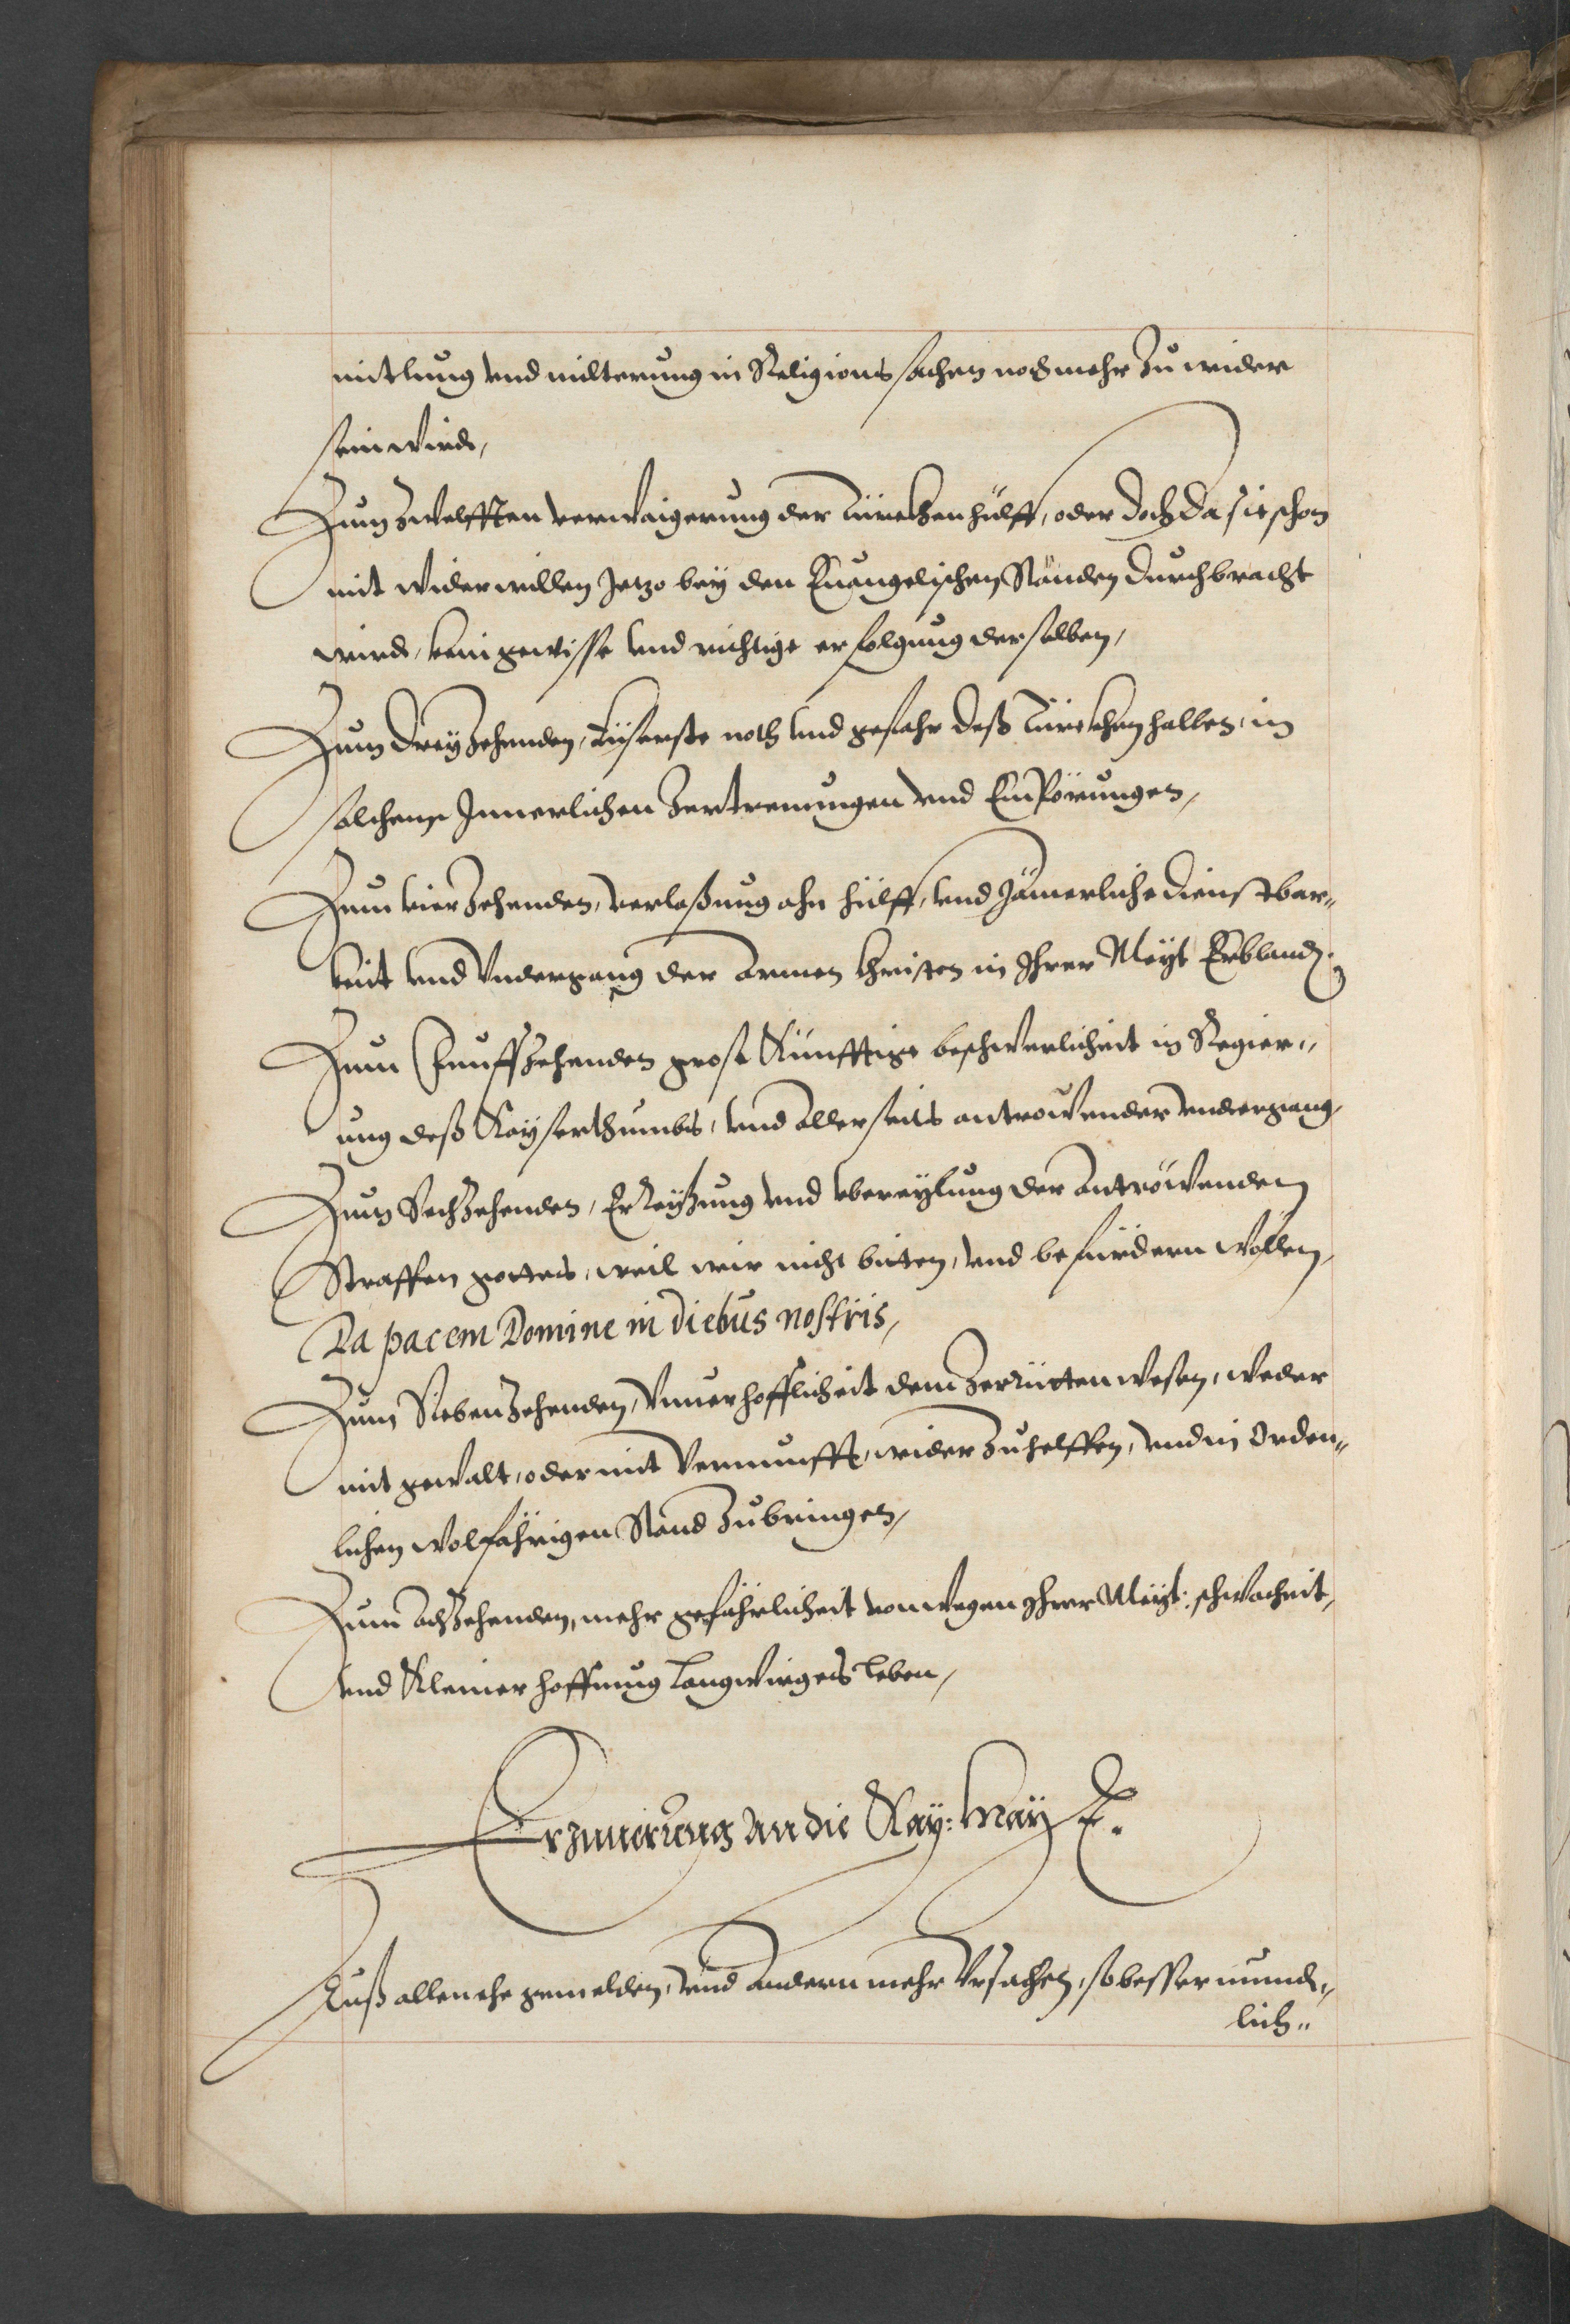 mitlung vnd milterung in Religions sachen noch mehr zu wider
sein wirdt,
Zum zwelfften verwaigerung der Türckhen hülff, oder doch da sie schon
mit widerwillen Jetzo bey den Euangelischen Ständen durchbracht
wirdt, kein gewisse vnd richtige erfolgung derselben,
Zum dreyzehenden, Eüserste noth vnd gefahr deß Türckhen halben, in
solchenn Jnnerlichen zertrennungen vnd Empörungen,
Zum vierzehenden, verlaßung ohn hülff, vnd Jämerliche dienstbar„
keit vnd vndergang der armen Christen in Jhrer Mayt Erblandt.
Zum funffzehenden grosse Künfftige beschwerlicheit in Regier„
ung deß Kayserthumbs, vnd allerseits antrowender vndergang,
Zum Sechzehenden, Erreytzung vnd vbereylung der antröwenden
Straffen gottes, weil wir nicht bieten, vnd befürdern wöllen,
Da pacem Domine in diebus nostris,
Zum Siebenzehenden, Vnuerhofflicheit dem zerrütten wesen, weder
mit gewalt, oder mit Vernunfft, wider zuhelffen, vnd in Orden„
lichen wolfährigen Stand zubringen,
Zum achzehenden, mehr gefährlicheit von wegen Jhrer Mayt: schwacheit,
vnd Kleiner hoffnung langwirges leben,
Erjnnerung an die Kay: May t.
Auß allen ehegemelden, vnd andern mehr Vrsachen, so besser mund„
lich„